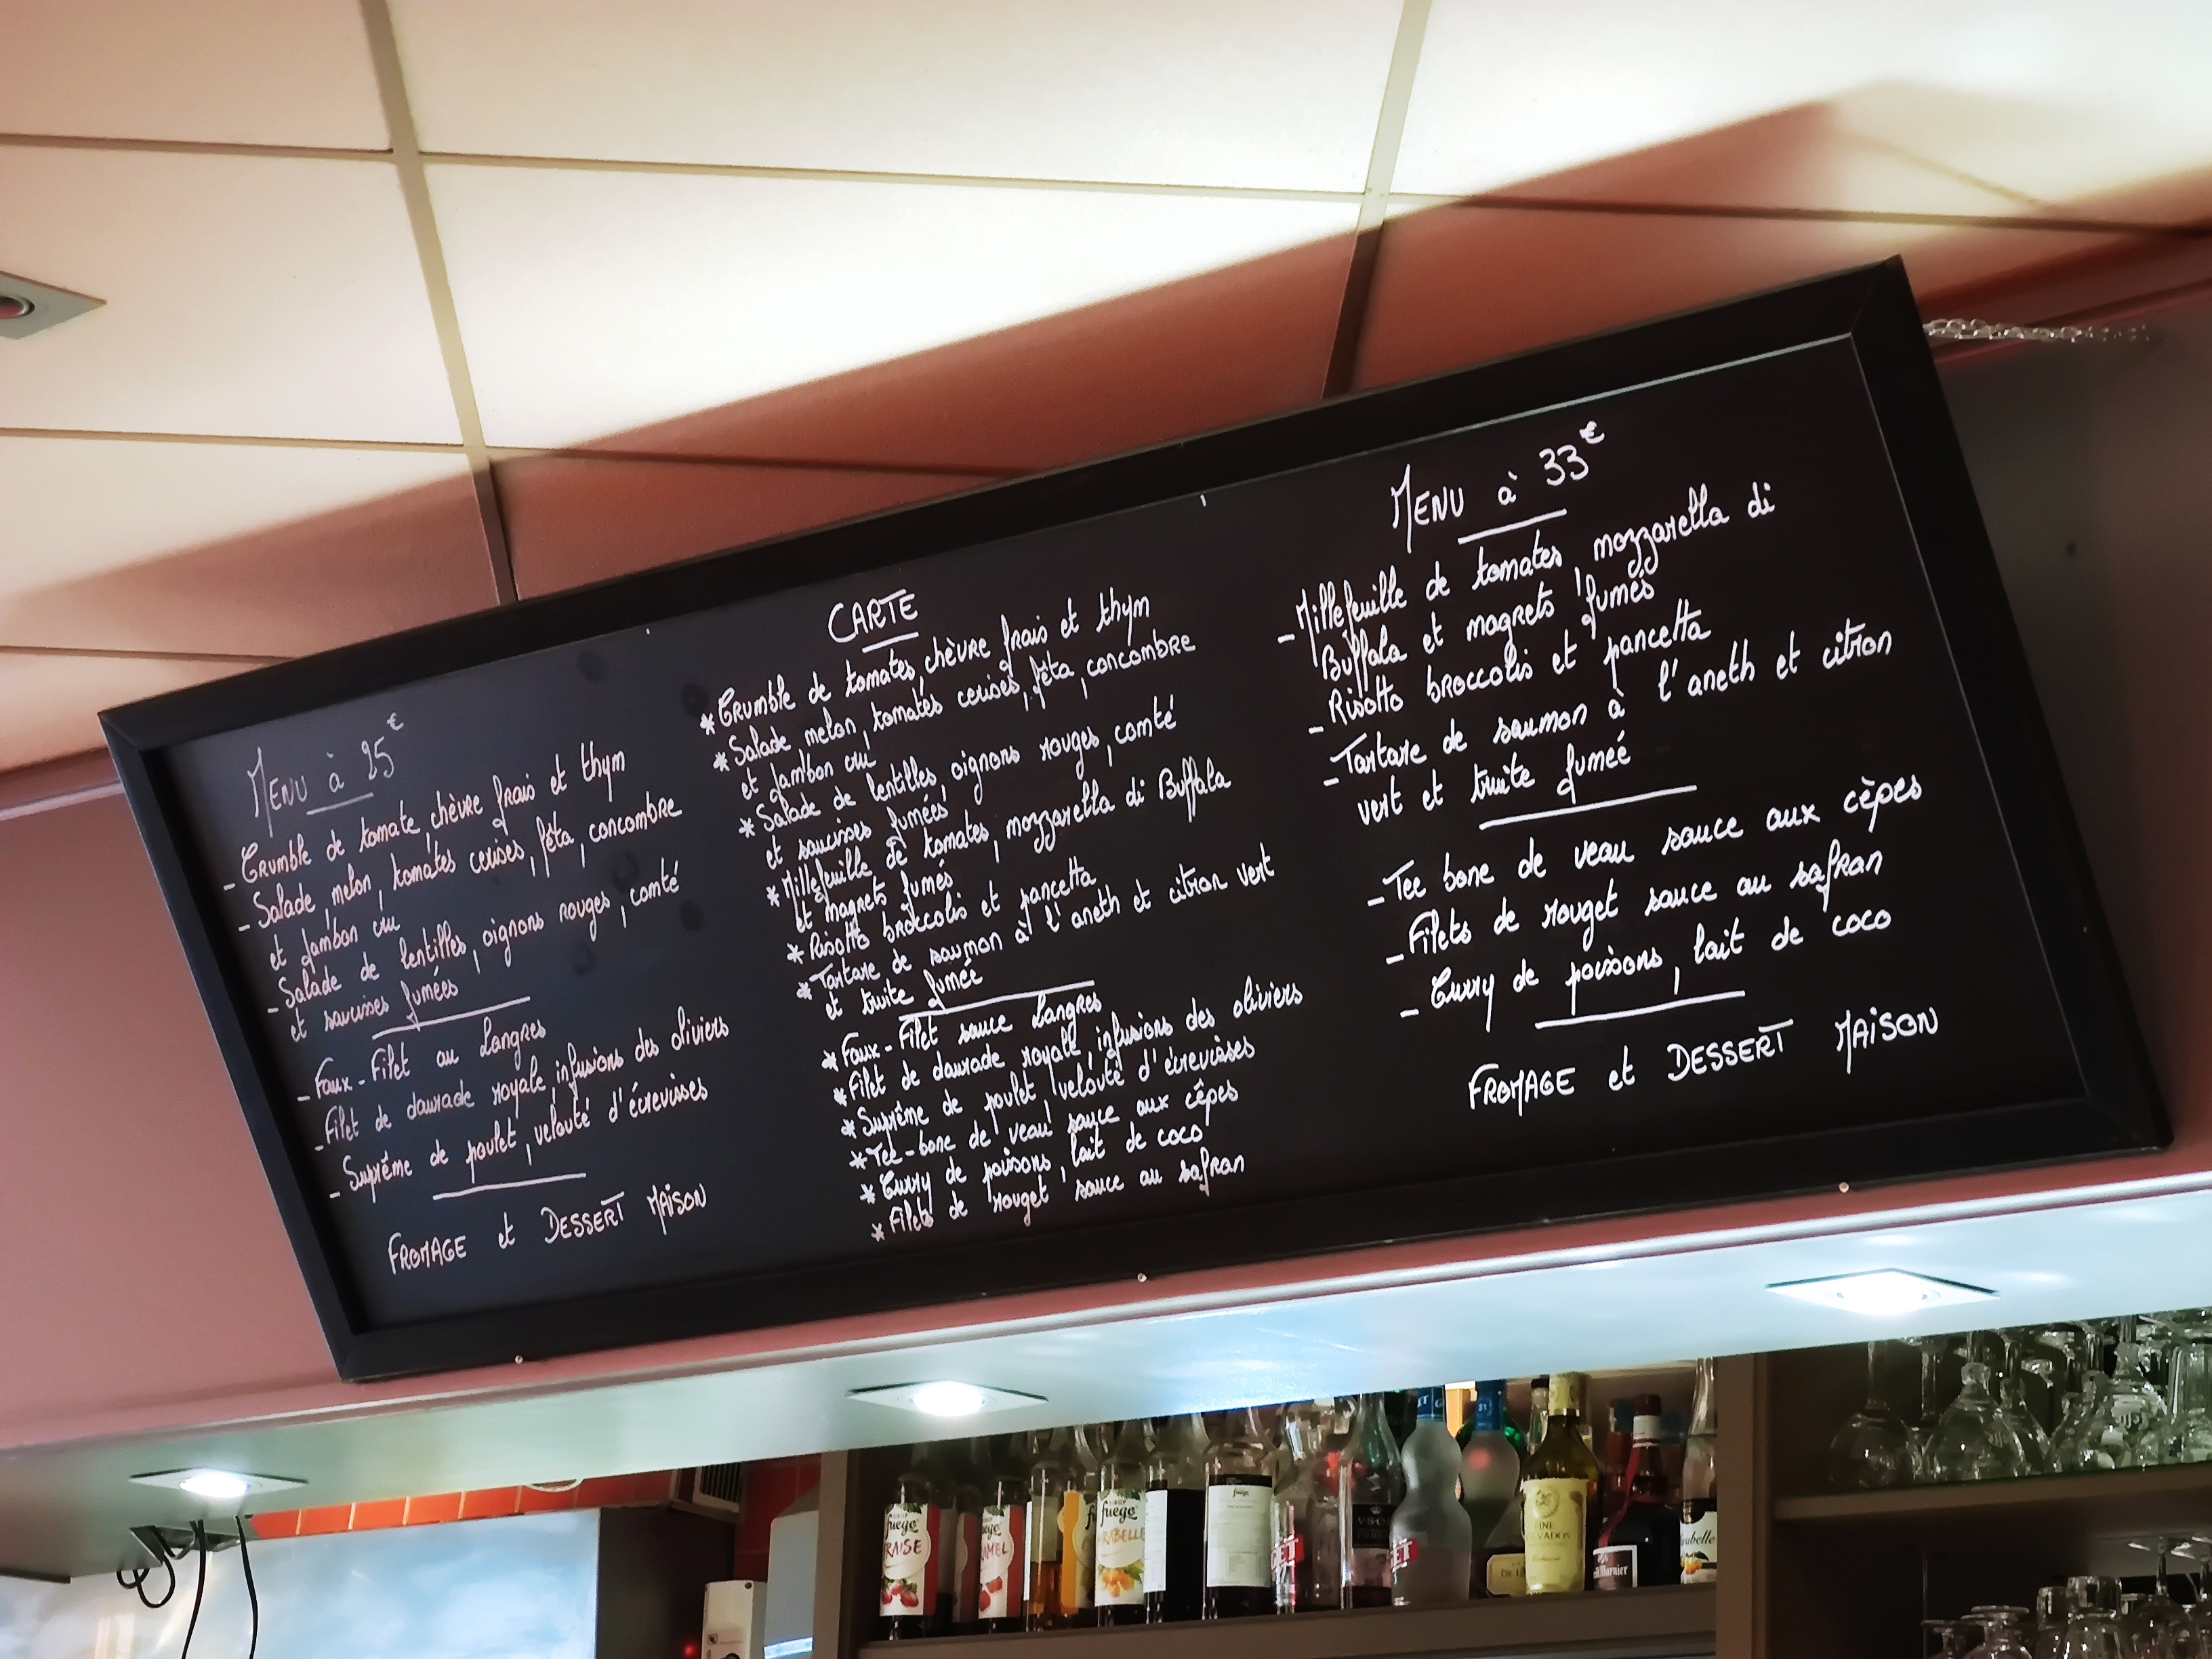 MENU à 25€
- Crumble de tomate, chèvre frais et thym
- Salade, melon, tomates cerises, fêta, concombre
et jambon cru
- Salade de lentilles, oignons rouges, comté
et saucisses fumées
- Faux-Filet au Langres
- Filet de daurade royale, infusions des oliviers
- Suprême de poulet, velouté d'écrevisses
FROMAGE et DESSERT MAISON
CARTE
* Crumble de tomates, chèvre frais et thym
* Salade melon, tomates cerises, fêta, concombre
et jambon cru
* Salade de lentilles, oignons rouges, comté
et saucisses fumées
* Millefeuille de tomates, mozzarella di Buffala
et magrets fumés
* Risotto broccolis et pancetta
* Tartare de saumon à l'aneth et citron vert
et truite fumée
* Faux-Filet sauce Langres
* Filet de daurade royale, infusions des oliviers
* Suprême de poulet, velouté d'écrevisses
* Tee-bone de veau sauce aux cêpes
* Curry de poissons, lait de coco
* Filets de rouget sauce au safran
MENU à 33€
- Millefeuille de tomates, mozzarella di
Buffala et magrets fumés
- Risotto broccolis et pancetta
- Tartare de saumon à l'aneth et citron
vert et truite fumée
- Tee bone de veau sauce aux cèpes
- Filets de rouget sauce au safran
- Curry de poissons, lait de coco
FROMAGE et DESSERT MAISON
fuego
RAISE
fuego
RABELLE
fuego
VSOP
ET
ET
FINE